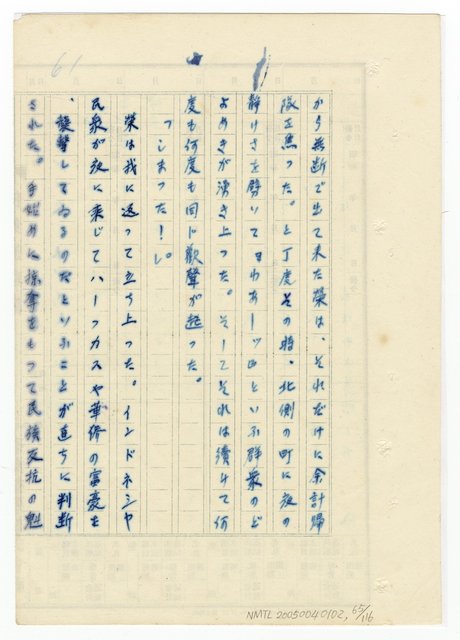 61
から無断で出て来た榮は、それだけに余計歸
隊を焦った。と丁度その時、北側の町に夜の
静けさを劈いて"わあーッ"といふ群衆のど
よめきが湧き上った。そしてそれは續けて何
度も何度も同じ歡聲が起った。
「しまった！」。
榮は我に返って立ち上った。インドネシヤ
民衆が夜に乗じてハーフカスや華僑の富豪を
、襲撃してゐるのだといふことが直ちに判断
された。手始めに掠奪をもつて民族反抗の魁
NMTL 20050040102, 65/116